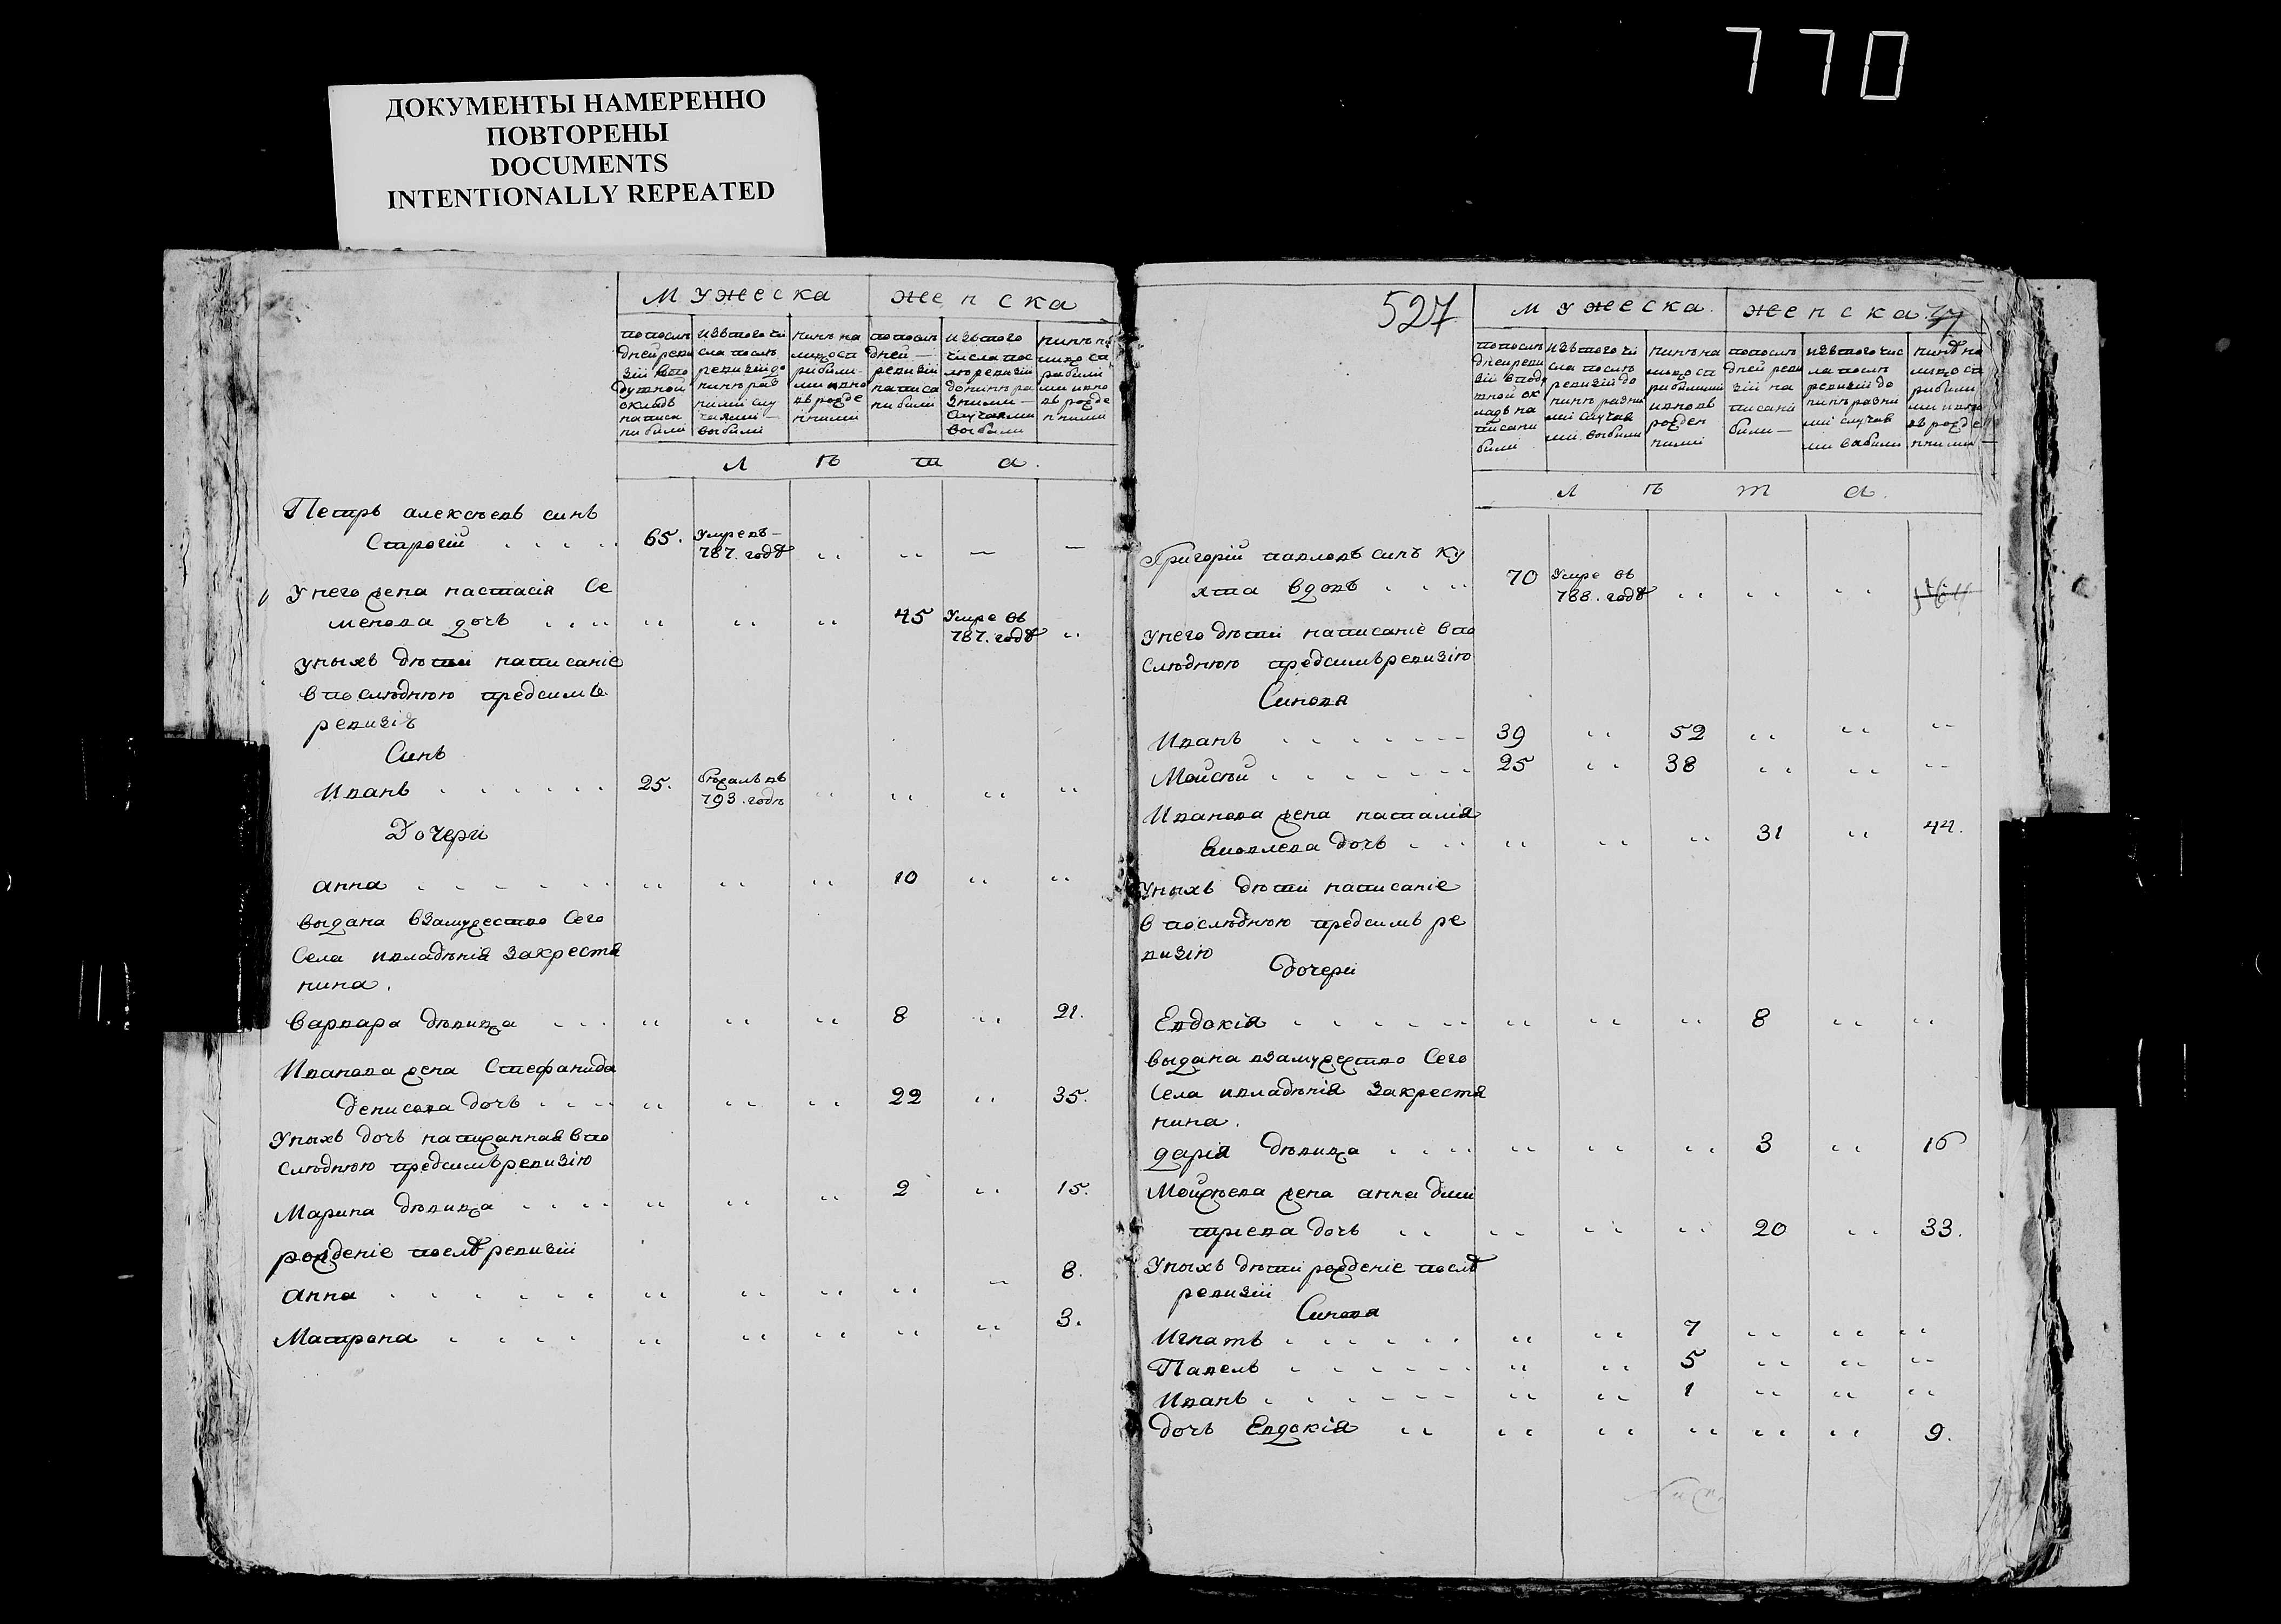 770
ДОКУМЕНТЫ НАМЕРЕННО
ПОВТОРЕНЫ
DOCUMENTS
INTENTIONALLY REPEATED
Мужеска женска
по после дней реви зiи в по душной окладъ написа ни были
изъ того чи сла после ревизiи до ныне раз ными слу чаями выбыли
ныне на лицо съ прибыли ми и вно въ рожде нными
по после дней ревизiи написа ни были
изъ того числа пос ле ревизiи до ныне ра зными случаями выбыли
ныне на лицо съ прибыли ми и вно въ рожде нными
Л ѣ т а.
Петръ алексѣевъ синъ
Строгiй 65. Умре въ 787. годѣ
У него жена настасiя Се
менова дочь 45 Умре въ 787. годѣ
у ныхъ дѣти написанiе
в послѣднюю предсимъ
ревизiѣ
Синъ
Иванъ 25. бѣжалъ въ 793. годѣ
Дочери
анна 10
выдана взамужество Сего
Села ивладѣнiя Закрестя
нина.
Варвара дѣвица 8 21.
Иванова жена Стефанида
денисова дочь 22 35.
У ныхъ дочь написанная в по
слѣднюю предсимъ ревизiю
Марина дѣвица 2 15.
рожденiе послѣ ревизiи
анна 8.
Матрона 3.
527
Мужеска. женска.
по после дней реви зiи в поду шной ок ладъ на писани были
изъ того чи сла после ревизiи до ныне разны ми случая ми выбыли
ныне на лицо съ прибывшими и вновь рожден ными
по после дней реви зiи на писани были
изъ того чис ла после ревизiи до ныне разны ми случая ми выбыли
ныне на лицо съ прибыли ми и вно въ рожде нными
Л ѣ т а.
Григорiй павловъ синъ Ку
хта вдовъ 70 Умре въ 788. годѣ
У него дѣти написанiе в по
слѣднюю предсимъ ревизiю
Синовя
Иванъ 39 52
Мойсѣй 25 38
Иванова жена наталiя
Яковлева дочь 31 44.
У ныхъ дѣти написанiе
в послѣднюю предсимъ ре
визiю
дочери
Евдокiя 8
выдана взамужество Сего
Села ивладѣнiя Закрестя
нина.
дарiя дѣвица 3 16
Мойсѣева жена анна дми
трiева дочь 20 33.
У ныхъ дѣти рожденiе послѣ
ревизiи
Синовя
Игнатъ 7
Павелъ 5
Иванъ 1
дочь Евдокiя 9.